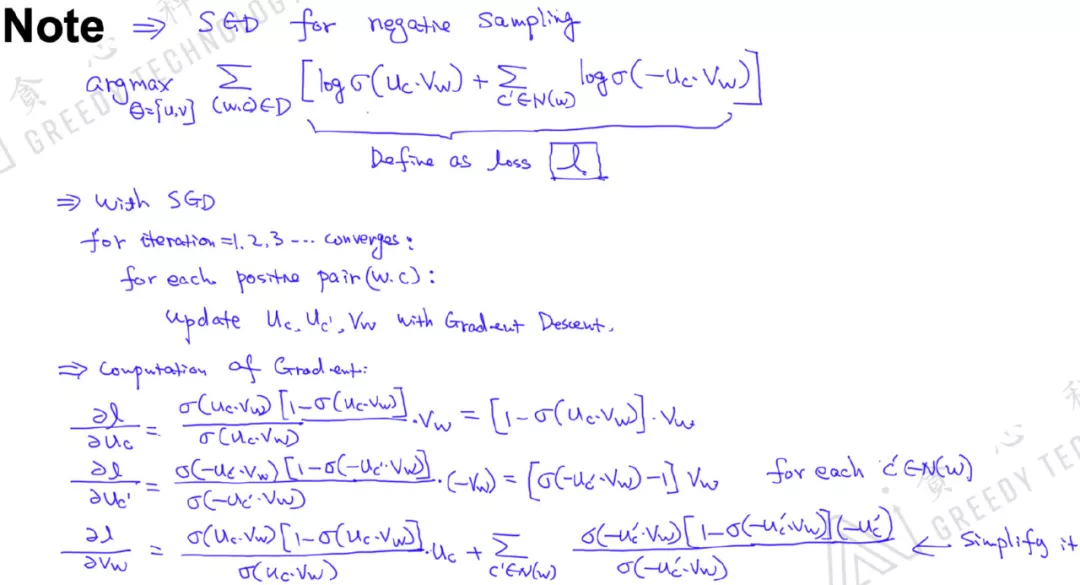 Note ⇒ SGD for negative sampling
argmax_{θ=[u,v]} Σ_{(w,c)∈D} [log σ(u_c·v_w) + Σ_{c'∈N(w)} log σ(-u_c·v_w)]
Define as loss l
⇒ with SGD
for iteration=1,2,3 --- converges:
for each positive pair(w,c):
update u_c, u_c', v_w with Gradient Descent.
⇒ Computation of Gradient:
∂l/∂u_c = σ(u_c·v_w)[1-σ(u_c·v_w)]/σ(u_c·v_w) ·v_w = [1-σ(u_c·v_w)]·v_w
∂l/∂u_c' = σ(-u_c'·v_w)[1-σ(-u_c'·v_w)]/σ(-u_c'·v_w) ·(-v_w) = [σ(-u_c'·v_w)-1] v_w for each c'∈N(w)
∂l/∂v_w = σ(u_c·v_w)[1-σ(u_c·v_w)]/σ(u_c·v_w) ·u_c + Σ_{c'∈N(w)} σ(-u_c'·v_w)[1-σ(-u_c'·v_w)](-u_c')/σ(-u_c'·v_w) ← Simplify it
贪心科
GREEDY TECHNOLOGY
贪心
GREEDY TEC